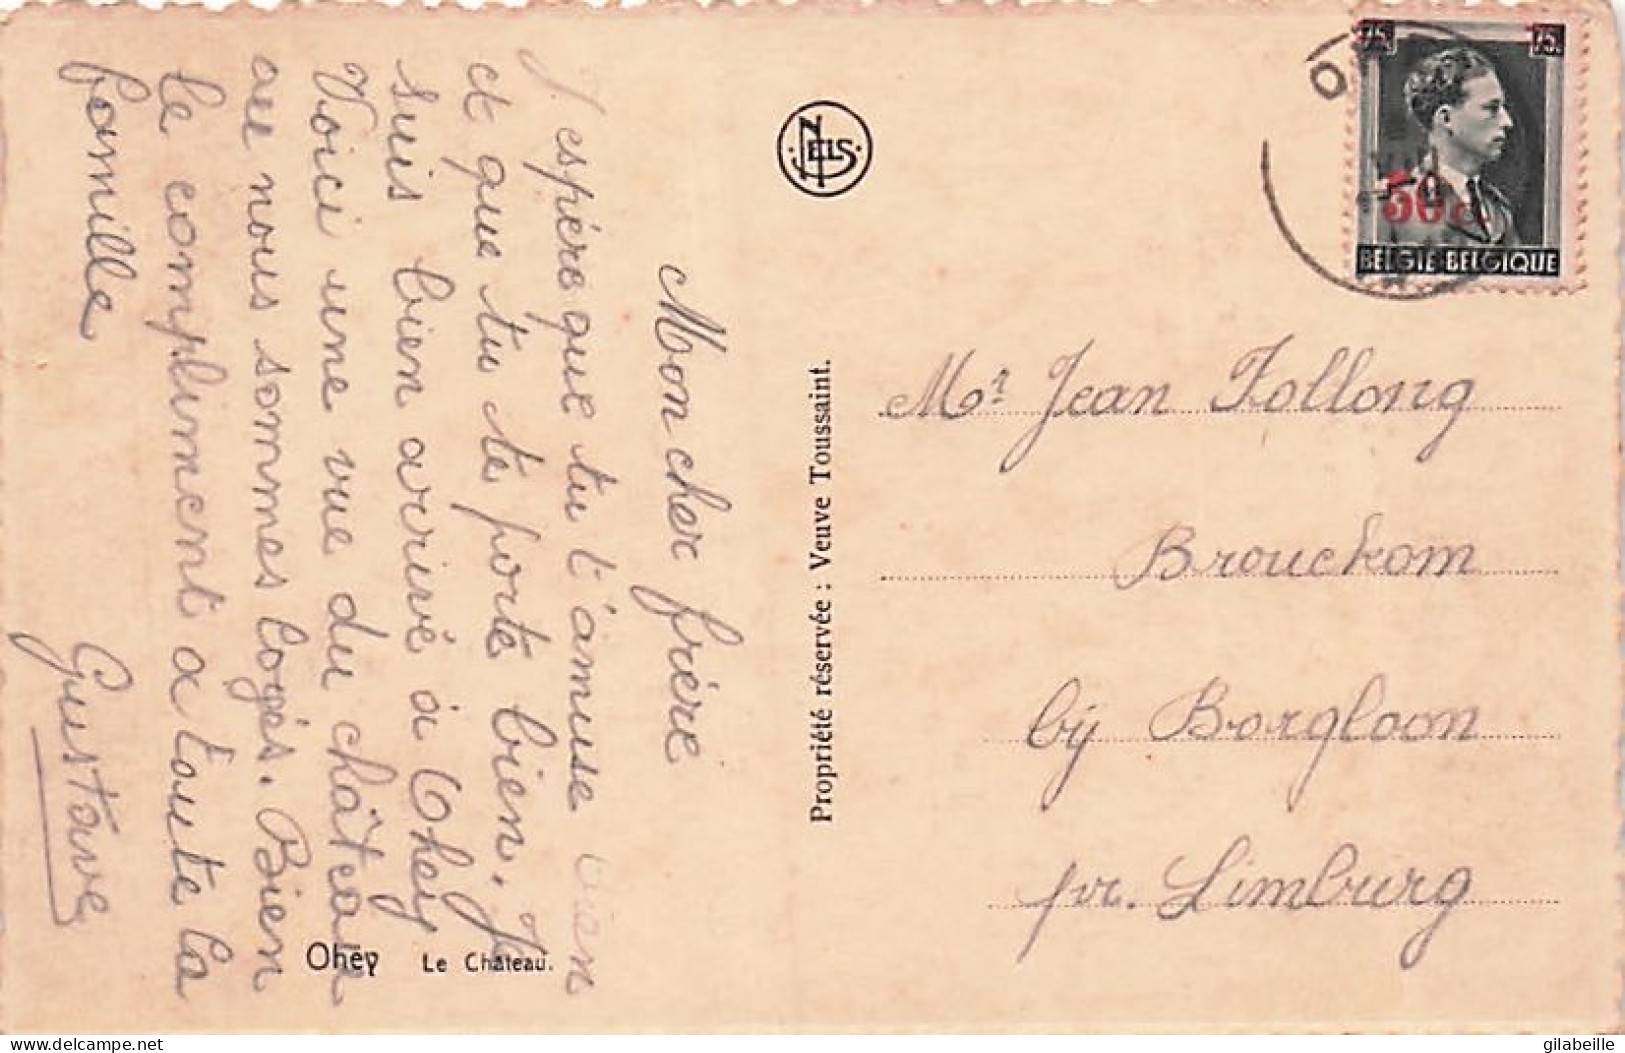 Mon cher frère
J'espère que tu t'amuse bien
et que tu te porte bien. Je
suis bien arrivé à Ohey
Voici une vue du château
au nous sommes logés. Bien
le compliment a toute la
famille
Gustave
Ohey Le Château.
Propriété réservée : Veuve Toussaint.
NELS
75 75
50 c.
BELGIË BELGIQUE
O
Mr Jean Follong
Brouckom
bÿ Borgloon
pr. Limburg
Delcampe.net
gilabeille